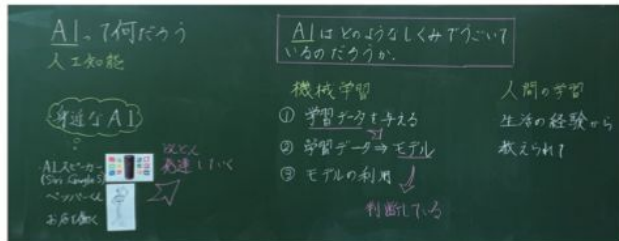 AIって何だろう
人工知能
身近なAI
AIスピーカー
(Siri, Google)
ペッパーくん
お店で働く
どんどん
発達していく
AIはどのようなしくみでうごいて
いるのだろうか。
機械学習
① 学習データを与える
② 学習データ⇒モデル
③ モデルの利用
判断している
人間の学習
生活の経験から
教えられて